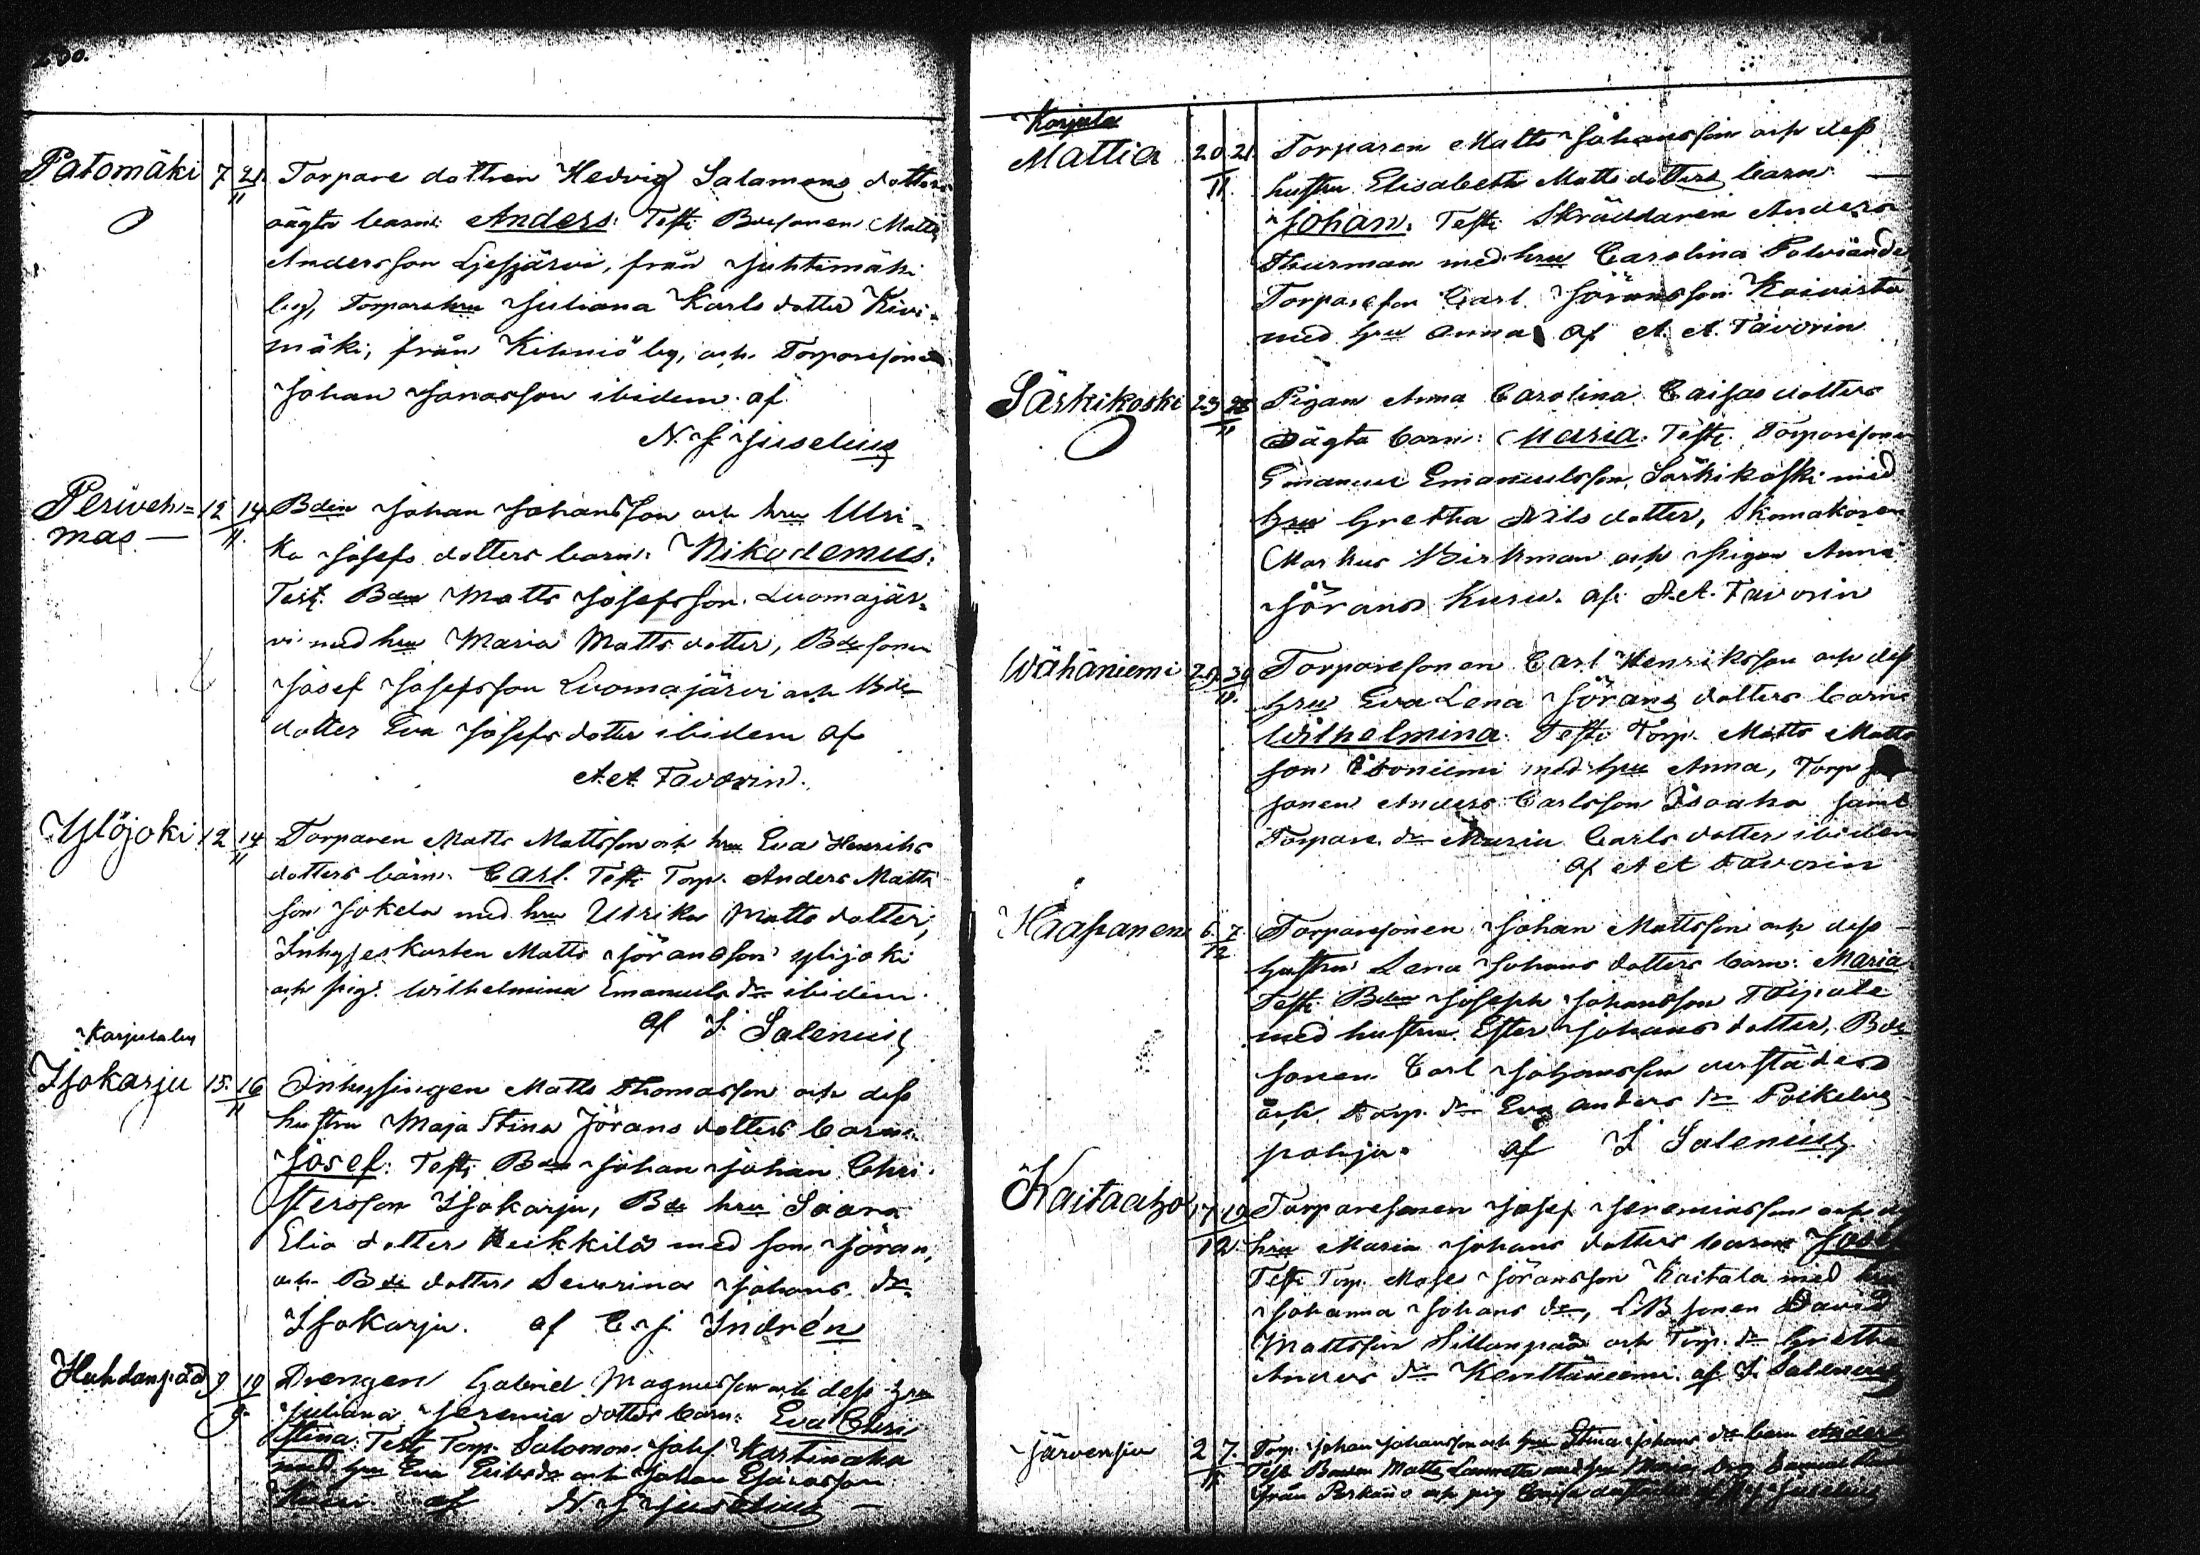 Patomäki 7 21/11 Torpare dottren Hedvig Salamons dotters
oägta barn: Anders: Test: Bdesonen Matts
Andersson Ljesjärvi, från Juhtimäki
by, Torparehru Juliana Karls dotter Kivi-
mäki, från Kihniö by, och Torparesonen
Johan Jonasson ibidem af
N. J. Juselius
Perivehmas 12 14/11 Bden Johan Johansson och hru Ulri-
ka Josefs dotters barn: Nikodemus:
Test: Bden Matts Josefsson Luomajär-
vi med hru Maria Matts dotter, Bdesonen
Josef Josefsson Luomajärvi och Bde
dotter Eva Josefs dotter ibidem af
A A Favorin.
Ylöjoki 12 14/11 Torparen Matts Mattsson och hru Eva Henriks
dotters barn: Carl. Test: Torp. Anders Matts
son Jokela med hru Ulrika Matts dotter,
Inhyseskarlen Matts Jöransson Ylijoki
och pig. Wilhelmina Emanuels dr ibidem.
af J. Salenius
Karjulaby
Isokarju 15 16/11 Inhysingen Matts Thomasson och dess
hustru Maja Stina Jörans dotters barn
Josef: Test: Bden Johan Johan Chri-
stersson Isokarju, Bde hru Saara
Elia dotter Heikkilä med son Jöran,
och Bde dotter Severina Johans dr
Isokarju. af C J Indrén
Huhdanpää 9 19/9 Drengen Gabriel Magnusson och dess hru
Juliana Jeremia dotters barn: Eva Chri
stina: Test: Torp. Salomon Josef Kortinaho
med hru Eva Eriks dr och Johan
af N J Juselius
Karjula
Mattia 20 21/11 Torparen Matts Johansson och dess
hustru Elisabeth Matts dotters barn
Johan. Test: Skräddaren Anders
Thurman med hru Carolina
Torpareson Carl Jöransson Koivisto
med hru Anna af A. A. Favorin
Särkikoski 23 28/11 Pigan Anna Carolina Caisas dotters
oägta barn: Maria. Test: Torparesonen
Emanuel Emanuelsson, Särkikoski med
hru Gretha Nils dotter, Skomakaren
Markus Birkman och pigan Anna
Jörans Kuru. af A. A. Favorin
Wähäniemi 29 30/11 Torparesonen Carl Henriksson och dess
hru Eva Lena Jörans dotters barn
Wilhelmina. Test: Torp. Matts Matts
son med hru Anna, Torp
sonen Anders Carlsson Isoaho samt
Torpare dr Maria Carls dotter ibidem
af A A Favorin
Haapanen 6 7/12 Torparesonen Johan Mattsson och dess
hustru Lena Johans dotters barn: Maria
Test: Bden Joseph Johansson Toipale
med hustru Ester Johans dotter, Bde
sonen Carl Johansson derstädes
och Torp. dr Eva Anders dr Poikelus
pohja. af J Salenius
Kaitaaho 17 19/12 Torparesonen Josef Jeremiasson och
hru Maria Johans dotters barn
Test: Torp. Moses Jöransson Kaitala med hru
Johanna Johans dr, LB sonen David
Mattsson Sillanpää och Torp. dr Gretha
Anders dr Kenttäniemi af J. Salenius
Järvensiu 2 7/11 Torp. Johan Johansson och hru Stina Johans dr barn Anders
Test: Matts med hru Maria
från Parkano och pig af N J Juselius